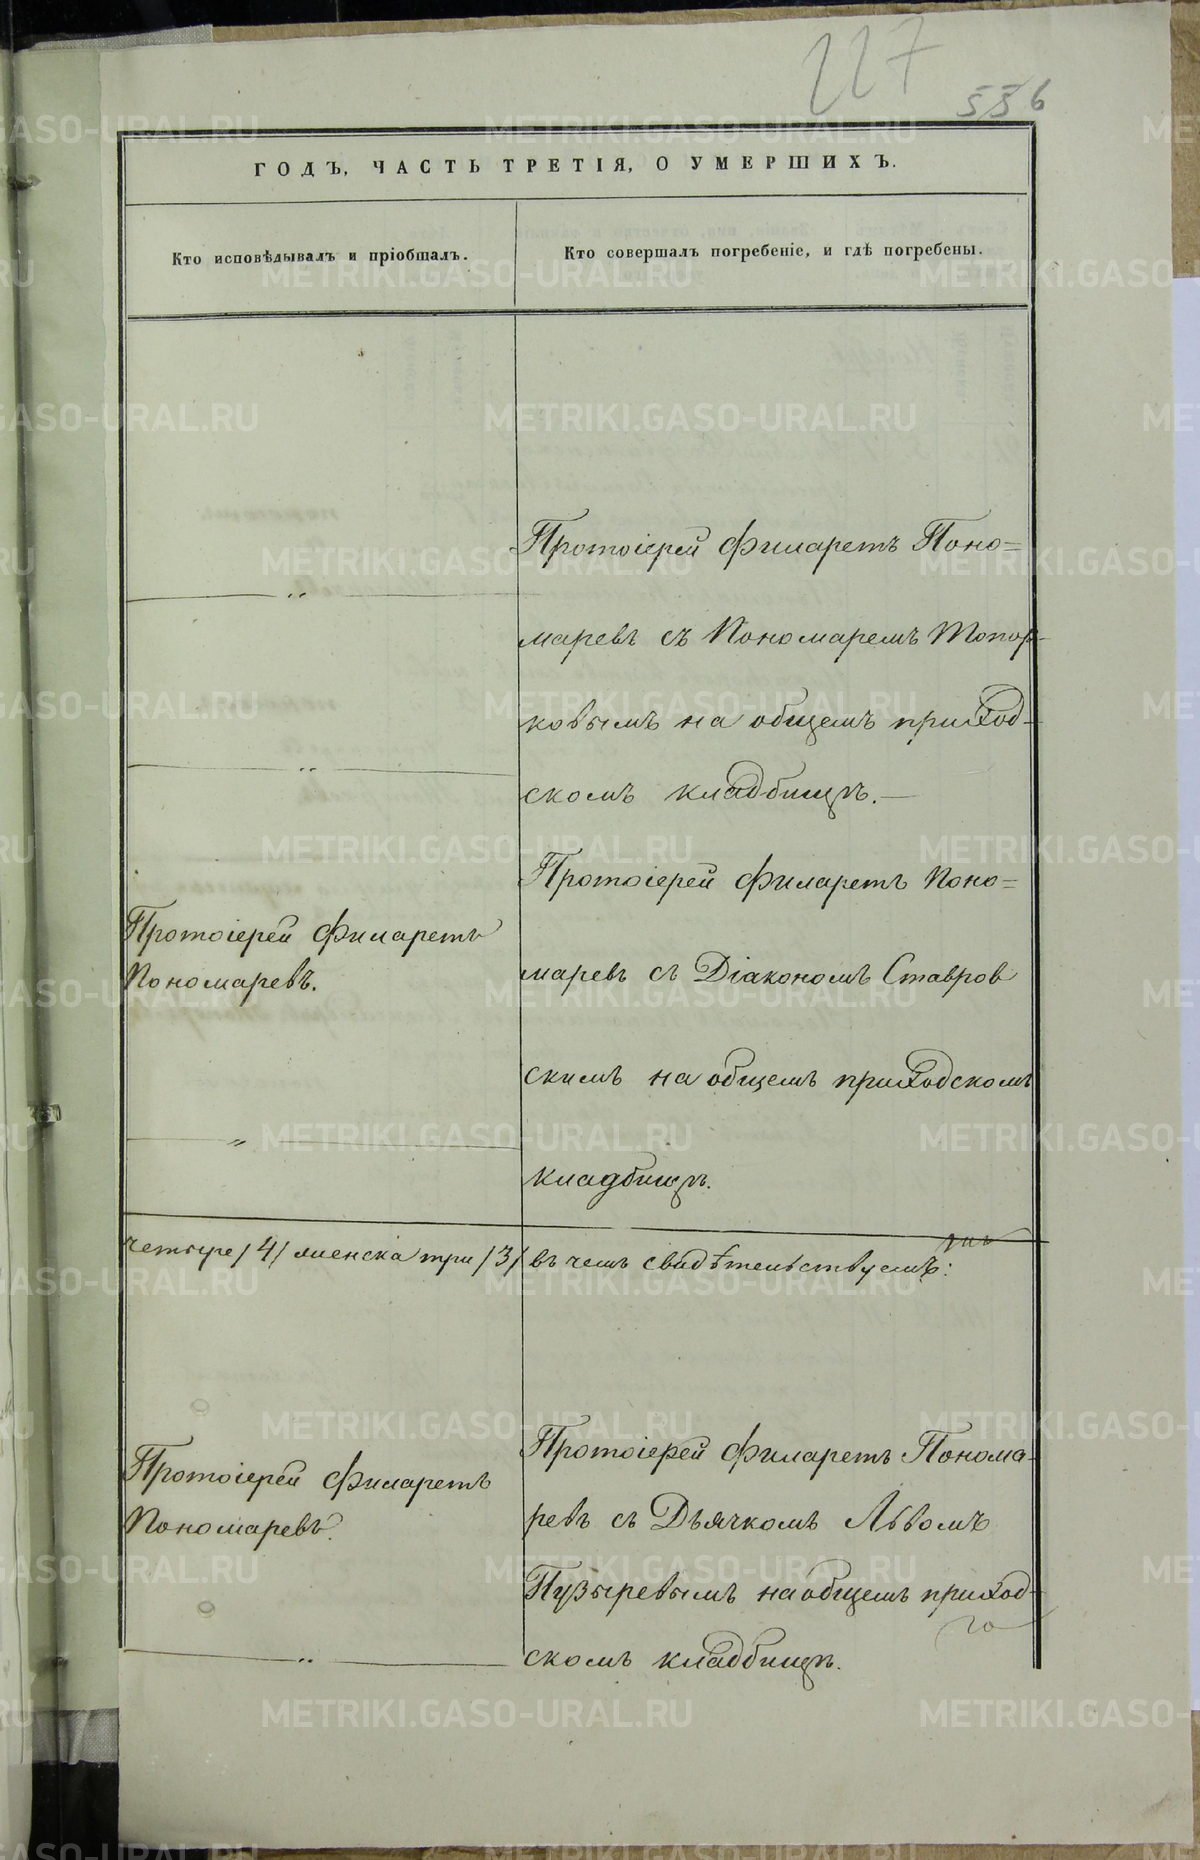 227
536
ГОДЪ, ЧАСТЬ ТРЕТІЯ, О УМЕРШИХЪ.
Кто исповѣдывалъ и пріобщалъ.
Кто совершалъ погребеніе, и гдѣ погребены.
Протоіерей Филаретъ Поно=
маревъ съ Пономаремъ Топор-
ковымъ на общемъ приход-
скомъ кладбищѣ.
Протоіерей Филаретъ Поно=
маревъ съ Діакономъ Ставров
скимъ на общемъ приходскомъ
кладбищѣ.
Протоіерей Филаретъ
Пономаревъ.
четыре /4/ женска три /3/ въ чемъ свидѣтельствуемъ:
Протоіерей Филаретъ
Пономаревъ.
Протоіерей Филаретъ Понома-
ревъ съ Дьячкомъ Львомъ
Пузыревымъ на общемъ приход-
скомъ кладбищѣ.
METRIKI.GASO-URAL.RU